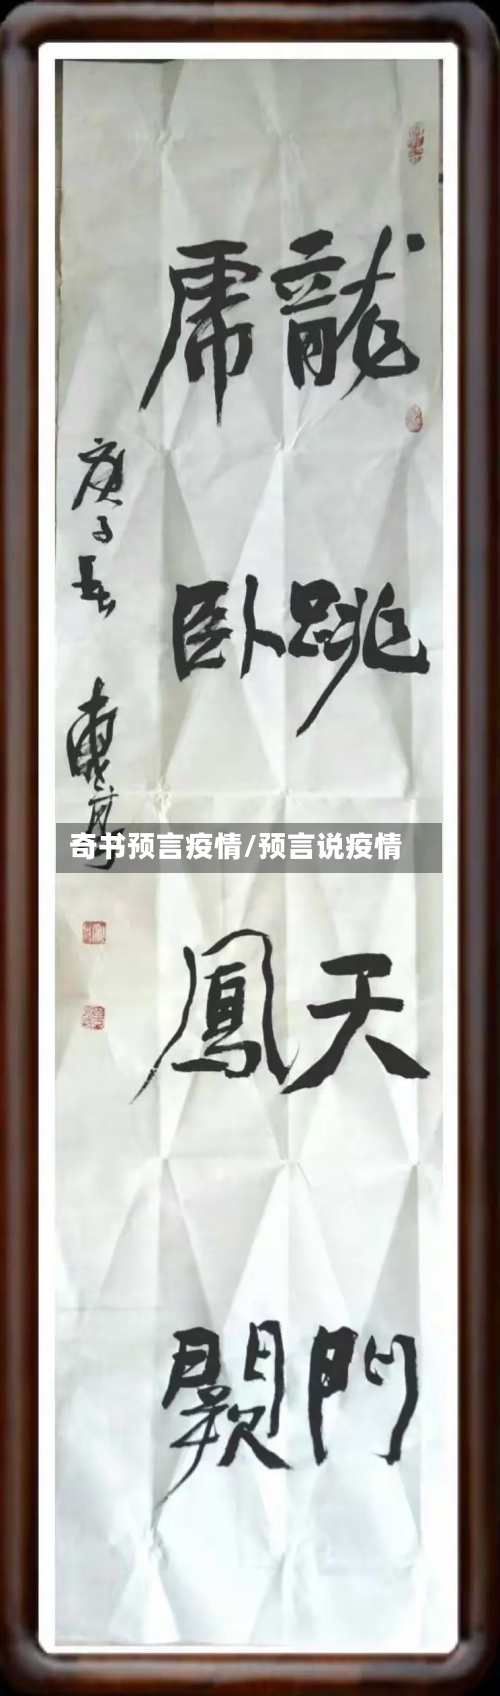 龍跳天門
虎卧鳳闕
庚子春
奇书预言疫情/预言说疫情